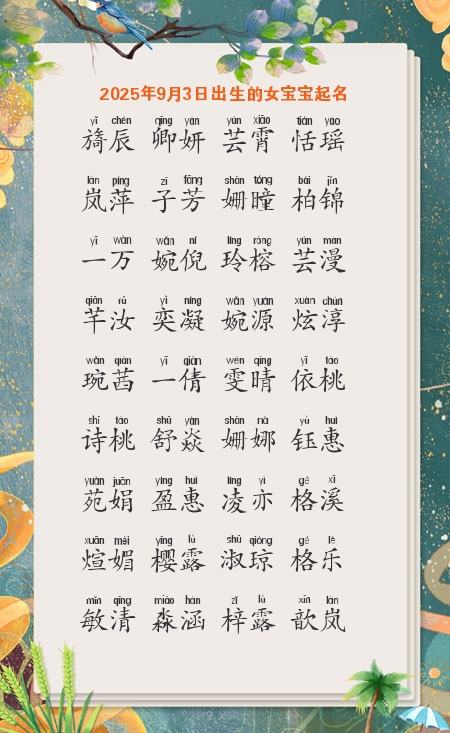 2025年9月3日出生的女宝宝起名
yǐ chén qīng yán yún xiāo tián yáo
旖辰 卿妍 芸霄 恬瑶
lán píng zǐ fāng shān tóng bǎi jǐn
岚萍 子芳 姗瞳 柏锦
yī wàn wǎn ní líng róng yún màn
一万 婉倪 玲榕 芸漫
qiān rǔ yì níng wǎn yuán xuàn chún
芊汝 奕凝 婉源 炫淳
wǎn qiàn yī qiàn wén qíng yī táo
琬茜 一倩 雯晴 依桃
shī táo shū yàn shān nà yù huì
诗桃 舒焱 姗娜 钰惠
yuàn juān yíng huì líng yì gé xī
苑娟 盈惠 凌亦 格溪
xuān mèi yīng lù shū qióng gé lè
煊媚 樱露 淑琼 格乐
mǐn qīng miǎo hán zǐ lù xīn lán
敏清 淼涵 梓露 歆岚